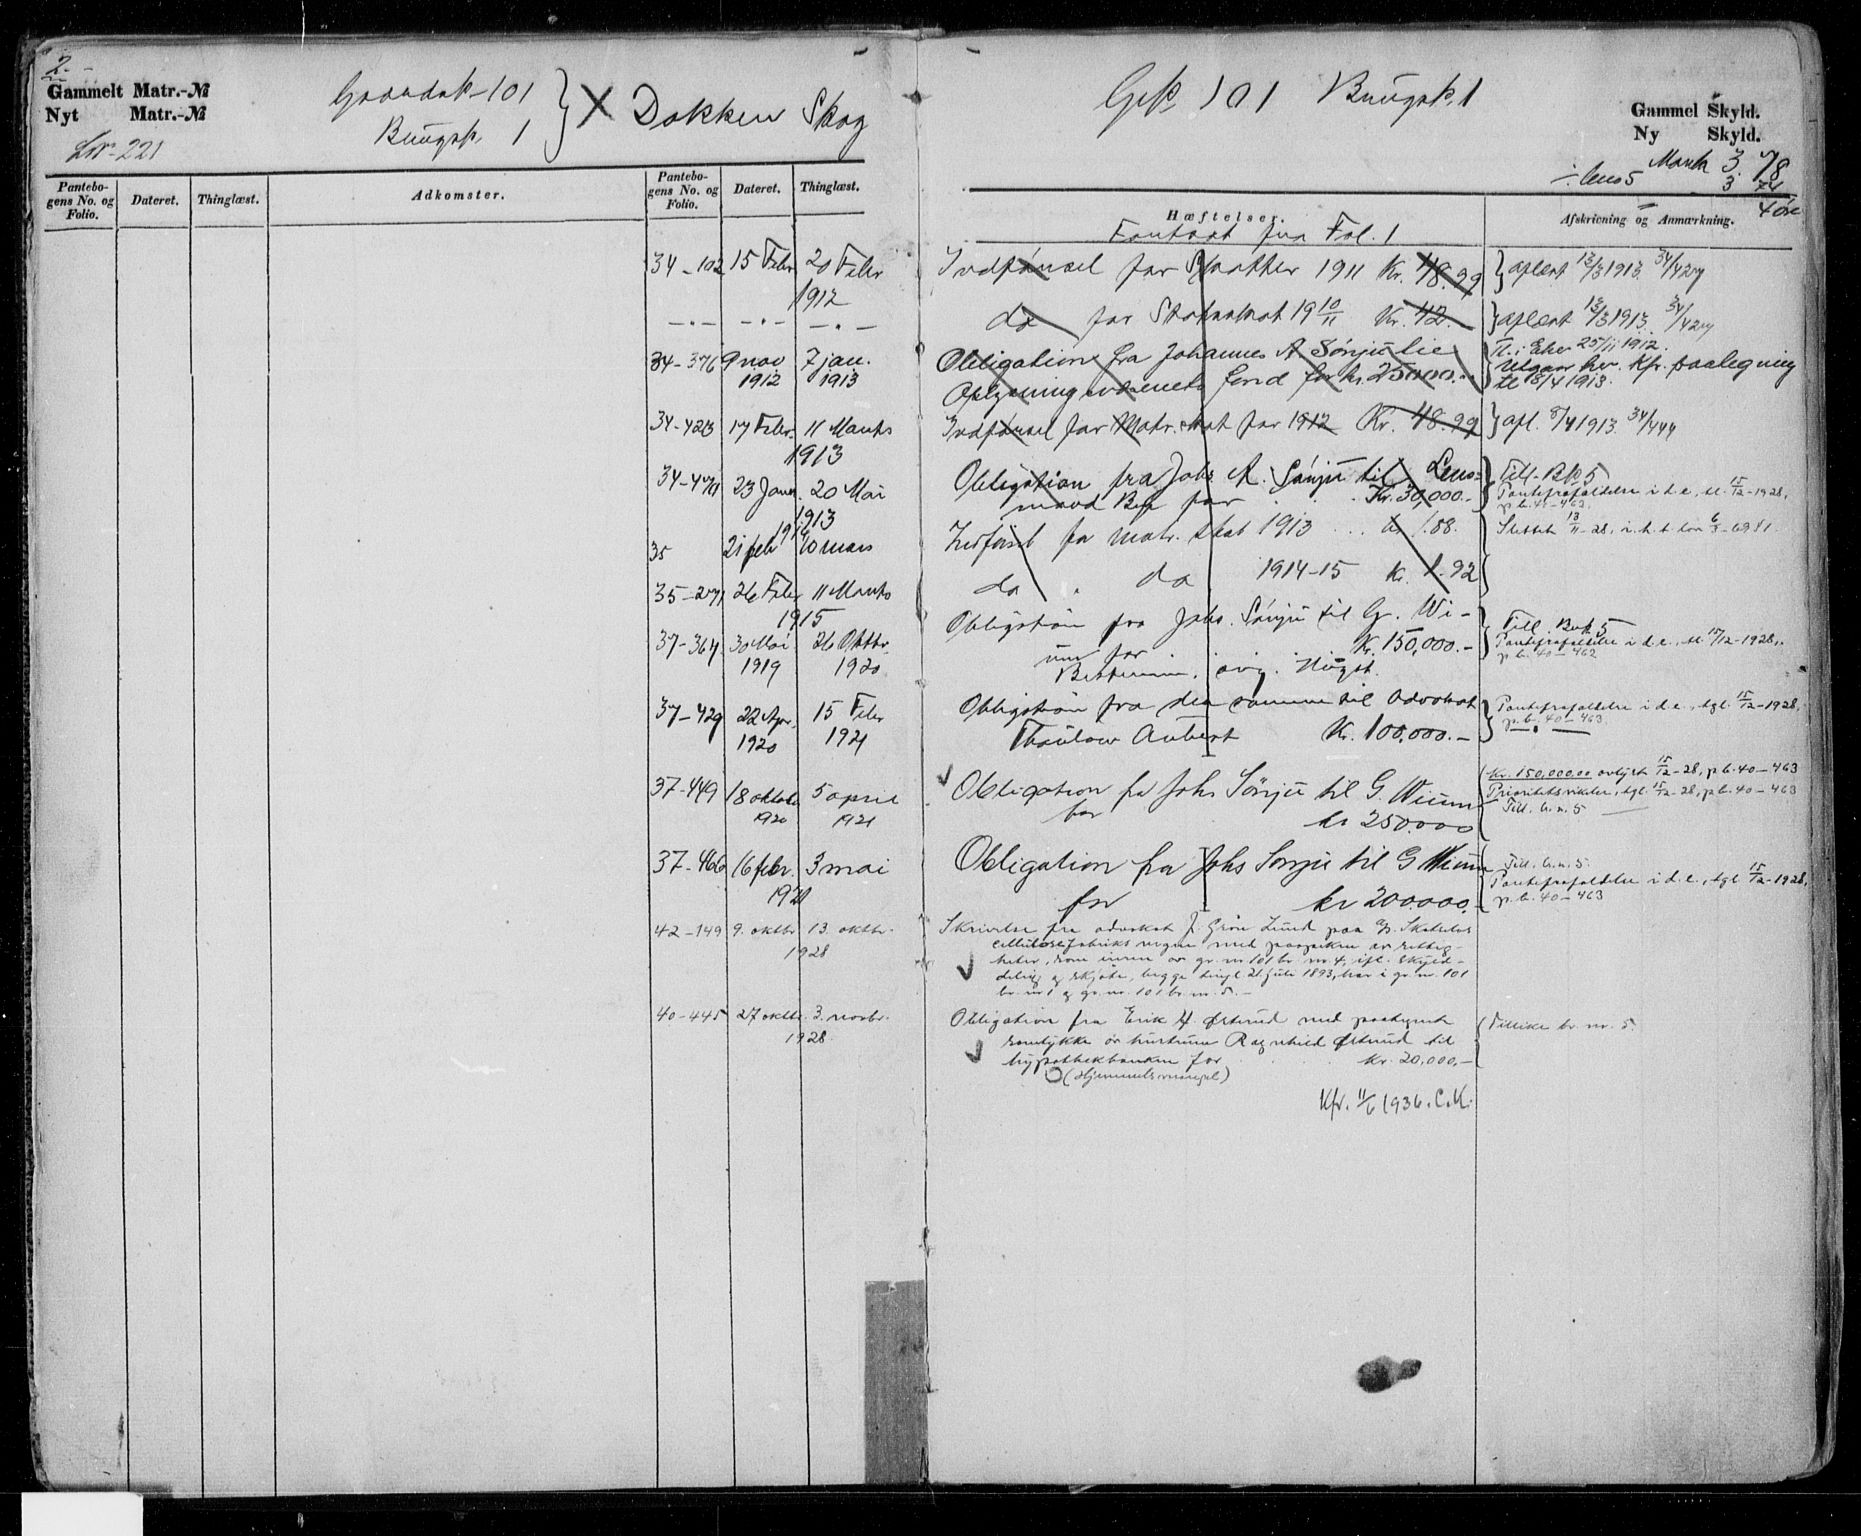 2.
Gammelt Matr.-№
Nyt Matr.-№
Gaardsk 101
Brugsk. 1
} X Dokken Skog
Lnr-221
Gsk 101 Brugsk. 1
Gammel Skyld.
Ny Skyld.
Mark 3.78
÷ bno 5 3 74
4 øre
Pantebogens No. og Folio. Dateret. Thinglæst. Adkomster. Pantebogens No. og Folio. Dateret. Thinglæst.
Hæftelser. Afskrivning og Anmærkning.
Fortsat fra Fol. 1
34-102 15 Febr 20 Febr 1912 Indførsel for Skatter 1911 Kr. 48.99 } aflæst 13/3 1913. 34/429
—„— —„— —„— do for Skat 19 10/11 Kr. 42. } aflæst 13/3 1913. 34/429
34-376 9 nov 1912 7 jan. 1913 Obligation fra Johannes A Sønju til
Oplysningsvæsenets fond for kr. 25000.-
Tl. i Eker 25/11 1912.
Utgaar her. Kfr. paalegning
til 8/4 1913.
34-423 17 Febr. 11 Marts 1913 Indførsel for Matr. skat for 1912 Kr. 48.99 } afl. 8/4 1913. 34/444
34-471 23 Janr. 20 Mai 1913 Obligation fra Johs A. Sønju til
for Kr. 30,000.-
Till. Bk 5
Pantefrafaldelse i d.e., tl. 15/12-1928,
p.b. 40-463
35 21 febr 10 mars Indførsel for matr. skat 1913 ... kr 1.88.
Slettet 13/11-28, i.h.t. lov
35-271 26 Febr 11 Marts 1915 do do 1914-15 Kr. 1.92
37-364 30 Mai 1919 26 Oktbr. 1920 Obligation fra Johs. Sønju til G. Wi-
um for Kr. 150,000.-
Till. Bk 5
Pantefrafaldelse i d.e., tl. 15/12-1928,
p.b. 40-463
37-429 22 Apr. 1920 15 Febr 1921 Obligation fra den samme til Advokat
Thaulow Aubert Kr. 100,000.-
Pantefrafaldelse i d.e., tgl. 15/12-1928,
p.b. 40-463.
37-449 18 oktob 1920 5 april 1921 Obligation fra Johs Sønju til G. Wium
for kr 250.000
Kr. 150,000.00 avlyst 15/12-28, p.b. 40-463
Prioritetsvikelse, tgl. 15/12-28, p.b. 40-463
Till. b.n. 5
37-466 16 febr. 3 mai 1921 Obligation fra Johs Sønju til G Wium
for kr 200.000.
Till. b.n. 5.
Pantefrafaldelse i d.e., tgl. 15/12-1928,
p.b. 40-463
42-149 9. oktbr 13. oktbr. 1928 Skrivelse fra advokat J. Grøn Lund paa
cellulosefabriks vegne med paapeken av rettig-
heter, som eieren av gr. nr 101 br. nr 4, ifl. skyld-
deling og skjøte, begge tingl. 21 juli 1893, har i gr. nr. 101
br. nr 1 og gr. nr. 101 br. nr. 5.-
40-445 27 oktbr. 3. novbr. 1928. Obligation fra Erik H. Østerud med paategnet
samtykke av hustruen Ragnhild Østerud til
hypothekbanken for kr. 20,000,-
(Hjemmelsmangel)
(Tillike br. nr. 5.
Kfr. 11/6 1936. C.K.